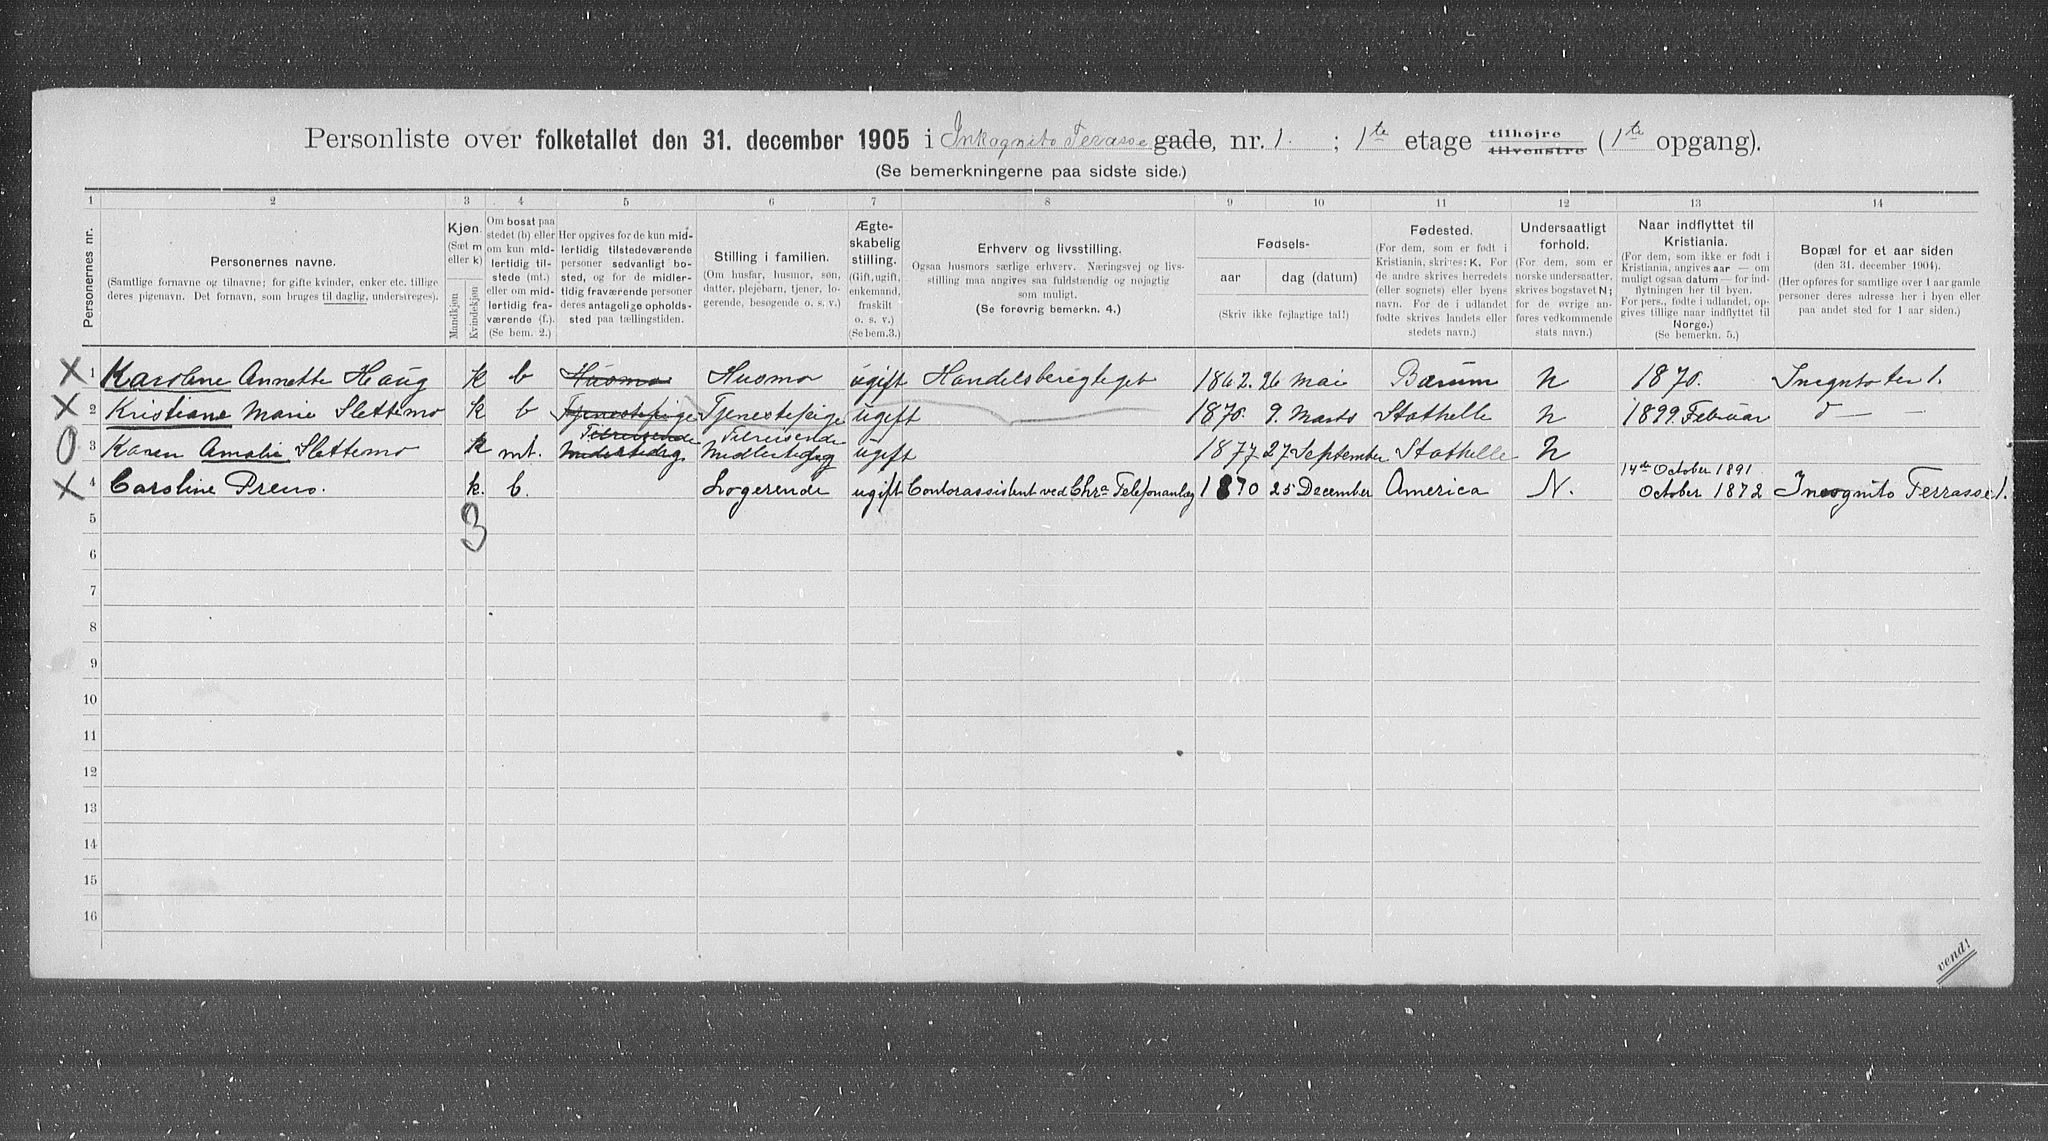 Personliste over folketallet den 31. december 1905 i Inkognito Terasse gade, nr. 1. ; 1te etage tilhøjre tilvenstre (1te opgang).
(Se bemerkningerne paa sidste side.)
1 2 3 4 5 6 7 8 9 10 11 12 13 14
Personernes nr.
Personernes navne.
(Samtlige fornavne og tilnavne; for gifte kvinder, enker etc. tillige
deres pigenavn. Det fornavn, som bruges til daglig, understreges).
Kjøn.
(Sæt m
eller k)
Mandkjøn
Kvindekjøn
Om bosat paa
stedet (b) eller
om kun mid-
lertidig til-
stede (mt.)
eller om mid-
lertidig fra-
værende (f.).
(Se bem. 2.)
Her opgives for de kun mid-
lertidig tilstedeværende
personer sedvanligt bo-
sted, og for de midler-
tidig fraværende personer
deres antagelige opholds-
sted paa tællingstiden.
Stilling i familien.
(Om husfar, husmor, søn,
datter, plejebarn, tjener, lo-
gerende, besøgende o. s. v.)
Ægte-
skabelig
stilling.
(Gift, ugift,
enkemand,
fraskilt
o. s. v.)
(Se bem.3.)
Erhverv og livsstilling.
Ogsaa husmors særlige erhverv. Næringsvej og livs-
stilling maa angives saa fuldstændig og nøjagtig
som muligt.
(Se forøvrig bemerkn. 4.)
Fødsels-
aar dag (datum)
(Skriv ikke fejlagtige tal!)
Fødested.
(For dem, som er født i
Kristiania, skrives: K. For
de andre skrives herredets
(eller sognets) eller byens
navn. For de i udlandet
fødte skrives landets eller
stedets navn.)
Undersaatligt
forhold.
(For dem, som er
norske undersaatter,
skrives bogstavet N;
for de øvrige an-
føres vedkommende
stats navn.)
Naar indflyttet til
Kristiania.
(For dem, som ikke er født i
Kristiania, angives aar — om
muligt ogsaa datum — for ind-
flytningen her til byen.
For pers., fødte i udlandet, op-
gives tillige naar indflyttet til
Norge.)
(Se bemerkn. 5.)
Bopæl for et aar siden
(den 31. december 1904).
(Her opføres for samtlige over 1 aar gamle
personer deres adresse her i byen eller
paa andet sted for 1 aar siden.)
X 1 Karoline Annette Haug k b Husmo Husmo ugift Handelsberegteget 1862. 26 Mai Bærum N 1870. Incgnito ter 1.
X 2 Kristiane Marie Slettemo k b Tjenestepige Tjenestepige ugift 1870. 9. Marts Stathelle N 1899. Februar d — —
Tilreisende Tilreisende
O 3 Karen Amalie Slettemo k mt. Midlertidig Midlertidig ugift 1877 27 September Stathelle N
14de October 1891
X 4 Caroline Preus. k. b. Logerende ugift Contorassistent ved Chra Telefonanlæg 1870 25 December America N. October 1872 Incognito Terrasse 1.
5 3
6
7
8
9
10
11
12
13
14
15
16
vend!